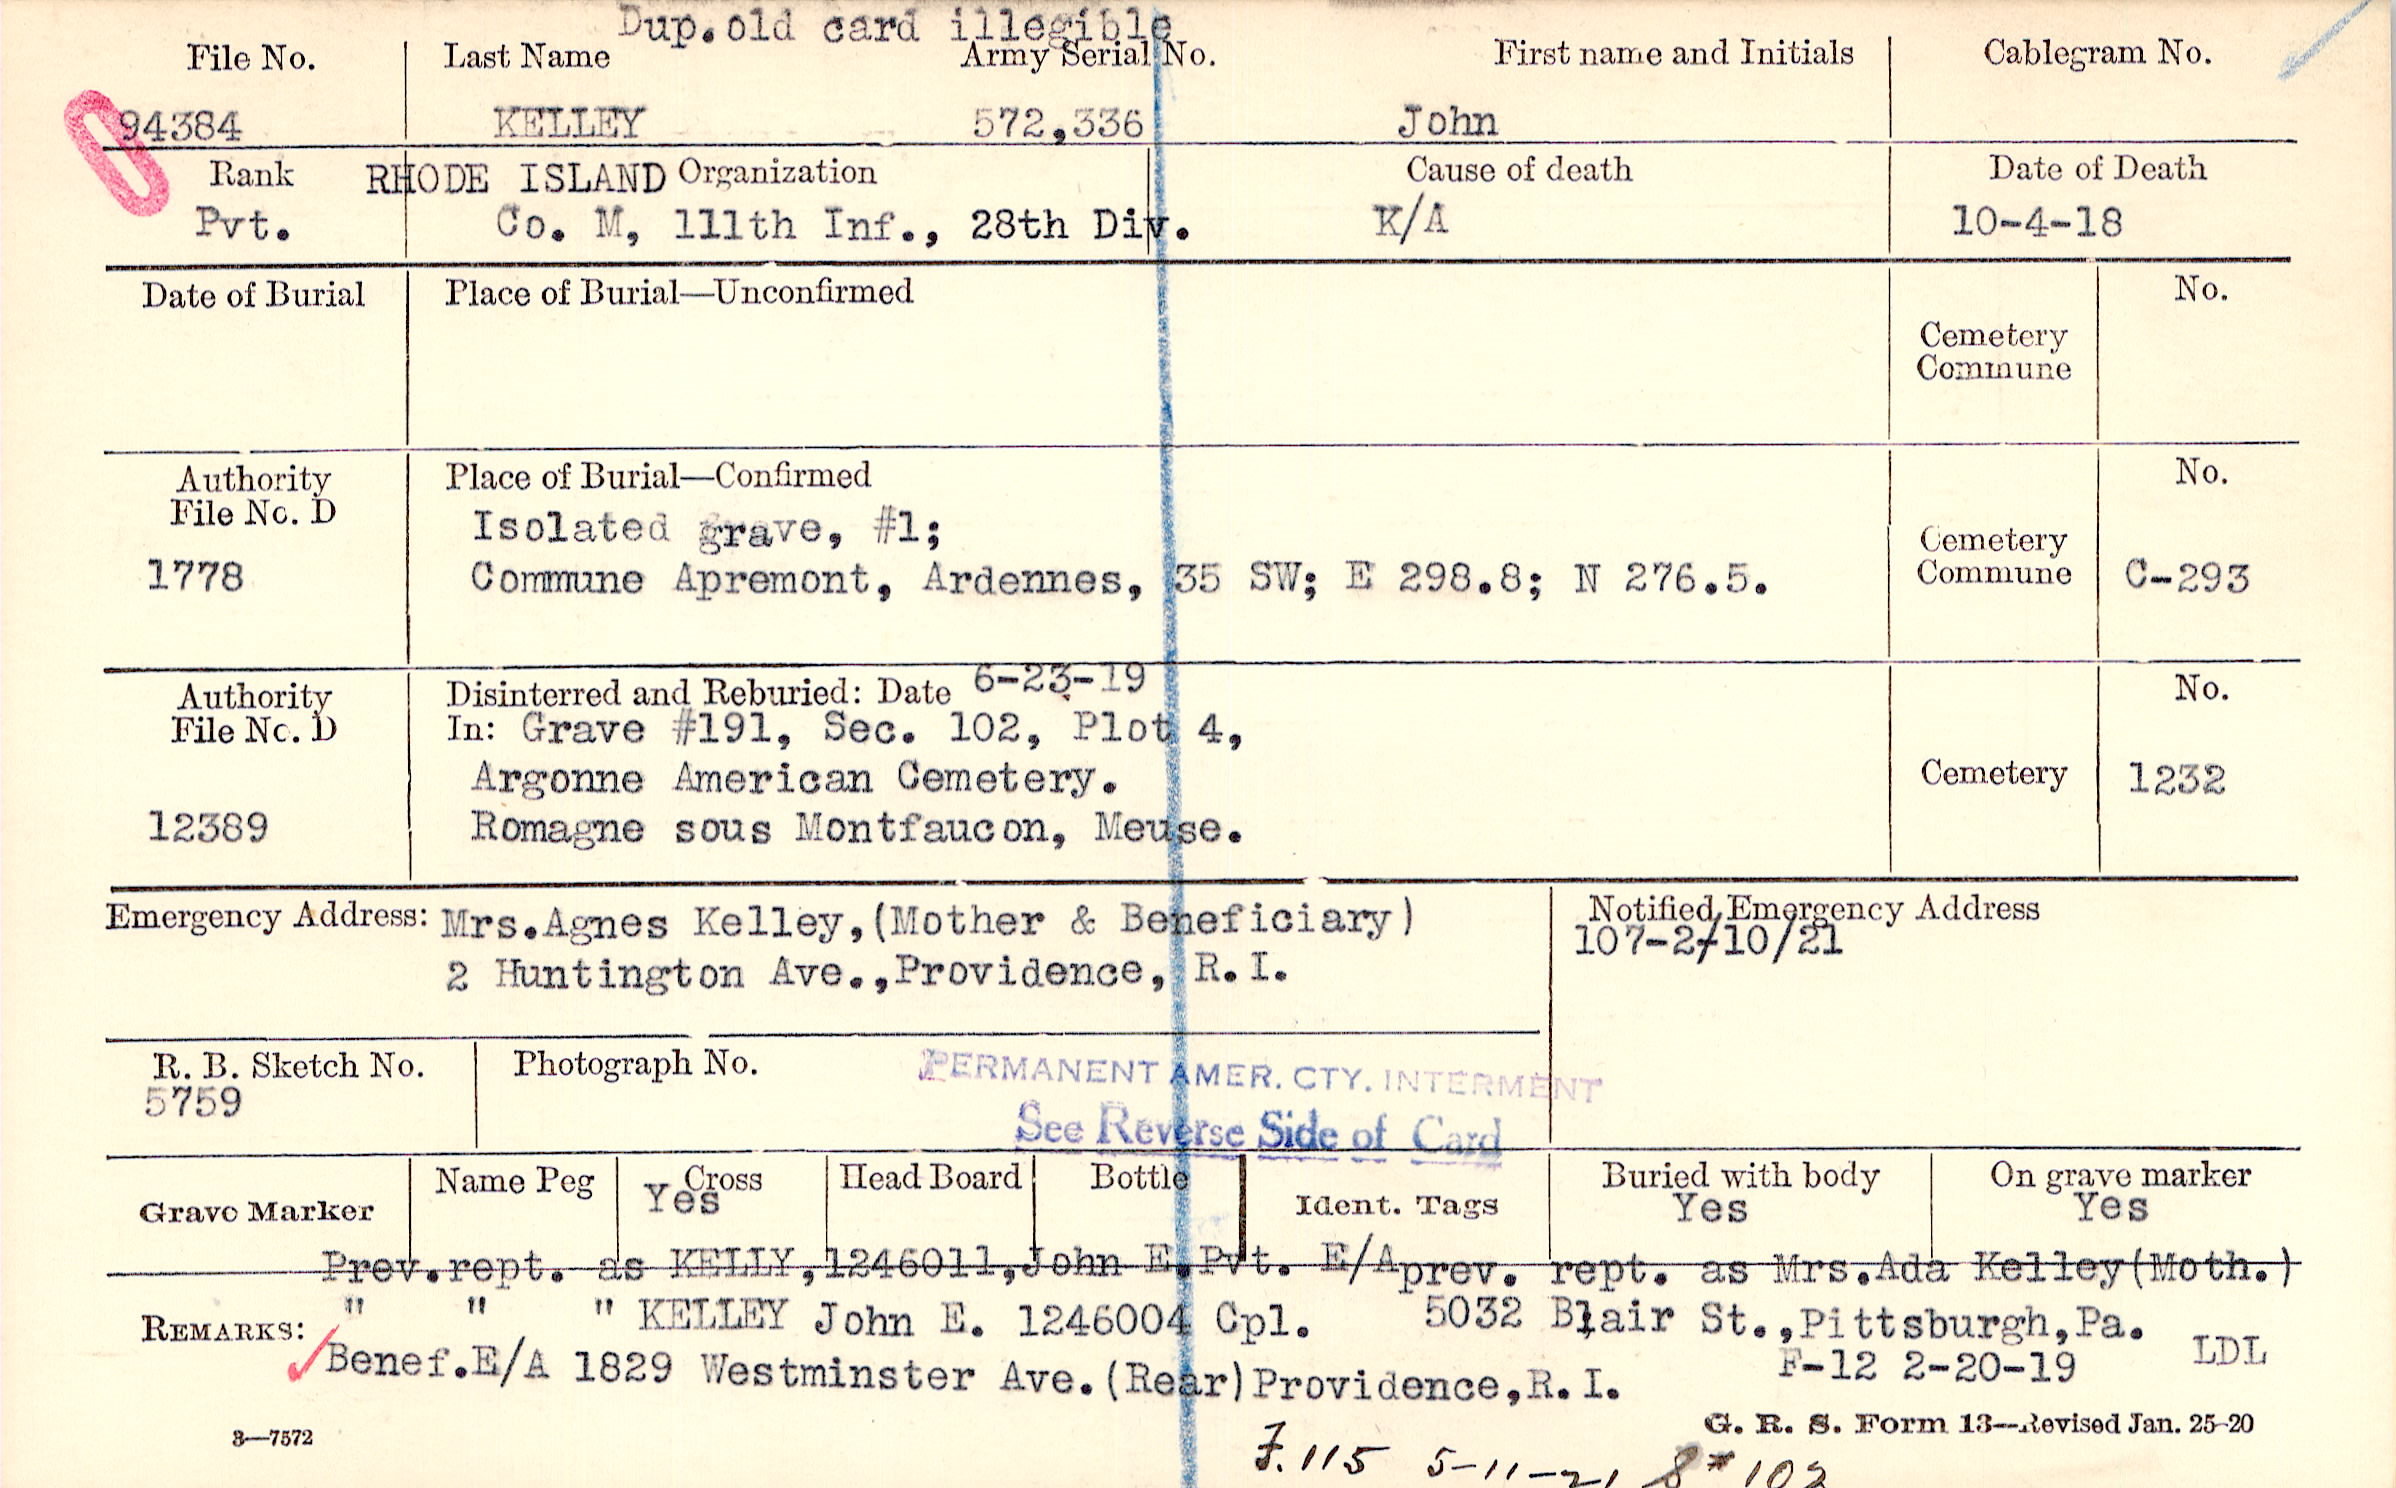 Dup.old card illegible
File No. Last Name Army Serial No. First name and Initials Cablegram No.
94384 KELLEY 572,336 John
Rank RHODE ISLAND Organization Cause of death Date of Death
Pvt. Co. M, 111th Inf., 28th Div. K/A 10-4-18
Date of Burial Place of Burial—Unconfirmed No.
Cemetery
Commune
Authority Place of Burial—Confirmed No.
File No. D
Isolated grave, #1;
Cemetery
1778 Commune Apremont, Ardennes, 35 SW; E 298.8; N 276.5. Commune C-293
Authority Disinterred and Reburied: Date 6-23-19 No.
File No. D In: Grave #191, Sec. 102, Plot 4,
Argonne American Cemetery. Cemetery 1232
12389 Romagne sous Montfaucon, Meuse.
Emergency Address: Mrs.Agnes Kelley,(Mother & Beneficiary) Notified Emergency Address
107-2/10/21
2 Huntington Ave.,Providence, R.I.
R. B. Sketch No. Photograph No. PERMANENT AMER. CTY. INTERMENT
5759
See Reverse Side of Card
Grave Marker Name Peg Cross Head Board Bottle Ident. Tags Buried with body On grave marker
Yes Yes Yes
Prev.rept. as KELLY,1246011,John E.Pvt. E/A prev. rept. as Mrs.Ada Kelley(Moth.)
" " " KELLEY John E. 1246004 Cpl. 5032 Blair St.,Pittsburgh,Pa.
REMARKS:
Benef.E/A 1829 Westminster Ave.(Rear)Providence,R.I. F-12 2-20-19 LDL
3—7572 G. R. S. Form 13—Revised Jan. 25-20
F.115 5-11-21 # 102